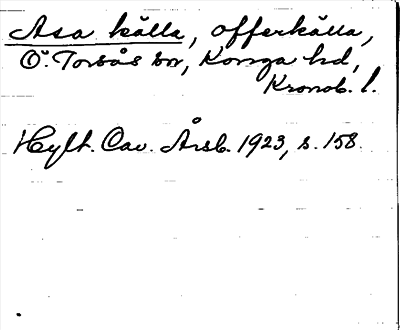 Asa källa, offerkälla,
Ö. Torsås sn, Konga hd,
Kronob. l.
Hylt. Cav. Årsb. 1923, s. 158.